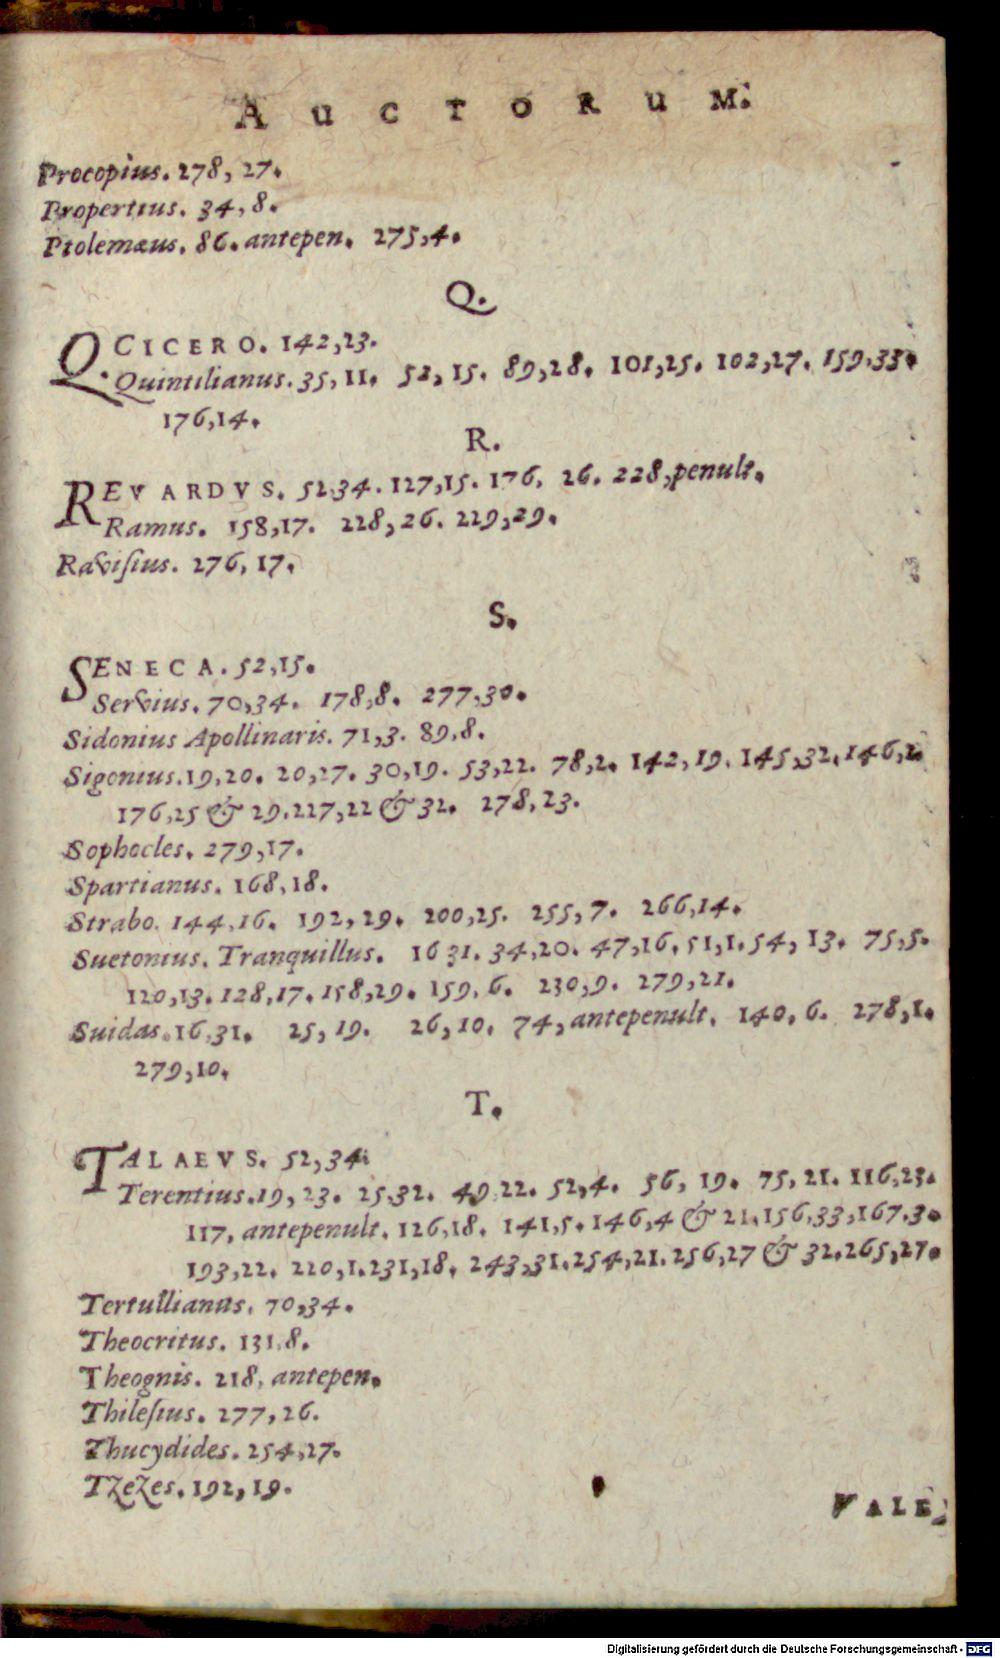 AUCTORUM.
Procopius. 278, 27.
Propertius. 34, 8.
Ptolemæus. 86. antepen. 275,4.
Q.
Q. CICERO. 142,23.
Quintilianus. 35, 11. 52, 15. 89,28. 101,25. 102,27. 159,33.
176,14.
R.
REVARDVS. 52,34. 127,15. 176, 26. 228,penult.
Ramus. 158,17. 228,26. 229,29.
Ravisius. 276, 17.
S.
SENECA. 52,15.
Servius. 70,34. 178,8. 277,30.
Sidonius Apollinaris. 71,3. 89,8.
Sigonius. 19,20. 20,27. 30,19. 53,22. 78,2. 142,19. 145,32. 146,2.
176,25 & 29. 227,22 & 32. 278,23.
Sophocles. 279,17.
Spartianus. 168,18.
Strabo. 144,16. 192, 29. 200,25. 255,7. 266,14.
Suetonius. Tranquillus. 16 31. 34,20. 47,16. 51,1. 54, 13. 75,5.
120,13. 128,17. 158,29. 159, 6. 230,9. 279,21.
Suidas. 16,31. 25, 19. 26, 10. 74, antepenult. 140, 6. 278,1.
279,10.
T.
TALAEVS. 52,34.
Terentius. 19, 23. 25,32. 49,22. 52,4. 56, 19. 75, 21. 116,23.
117, antepenult. 126,18. 141,5. 146,4 & 21. 156,33, 167,3.
193,22. 220,1. 231,18. 243,31. 254,21. 256,27 & 32. 265,27.
Tertullianus. 70,34.
Theocritus. 131,8.
Theognis. 218, antepen.
Thilesius. 277, 26.
Thucydides. 254,27.
Tzezes. 192, 19.
VALE
Digitalisierung gefördert durch die Deutsche Forschungsgemeinschaft - DFG